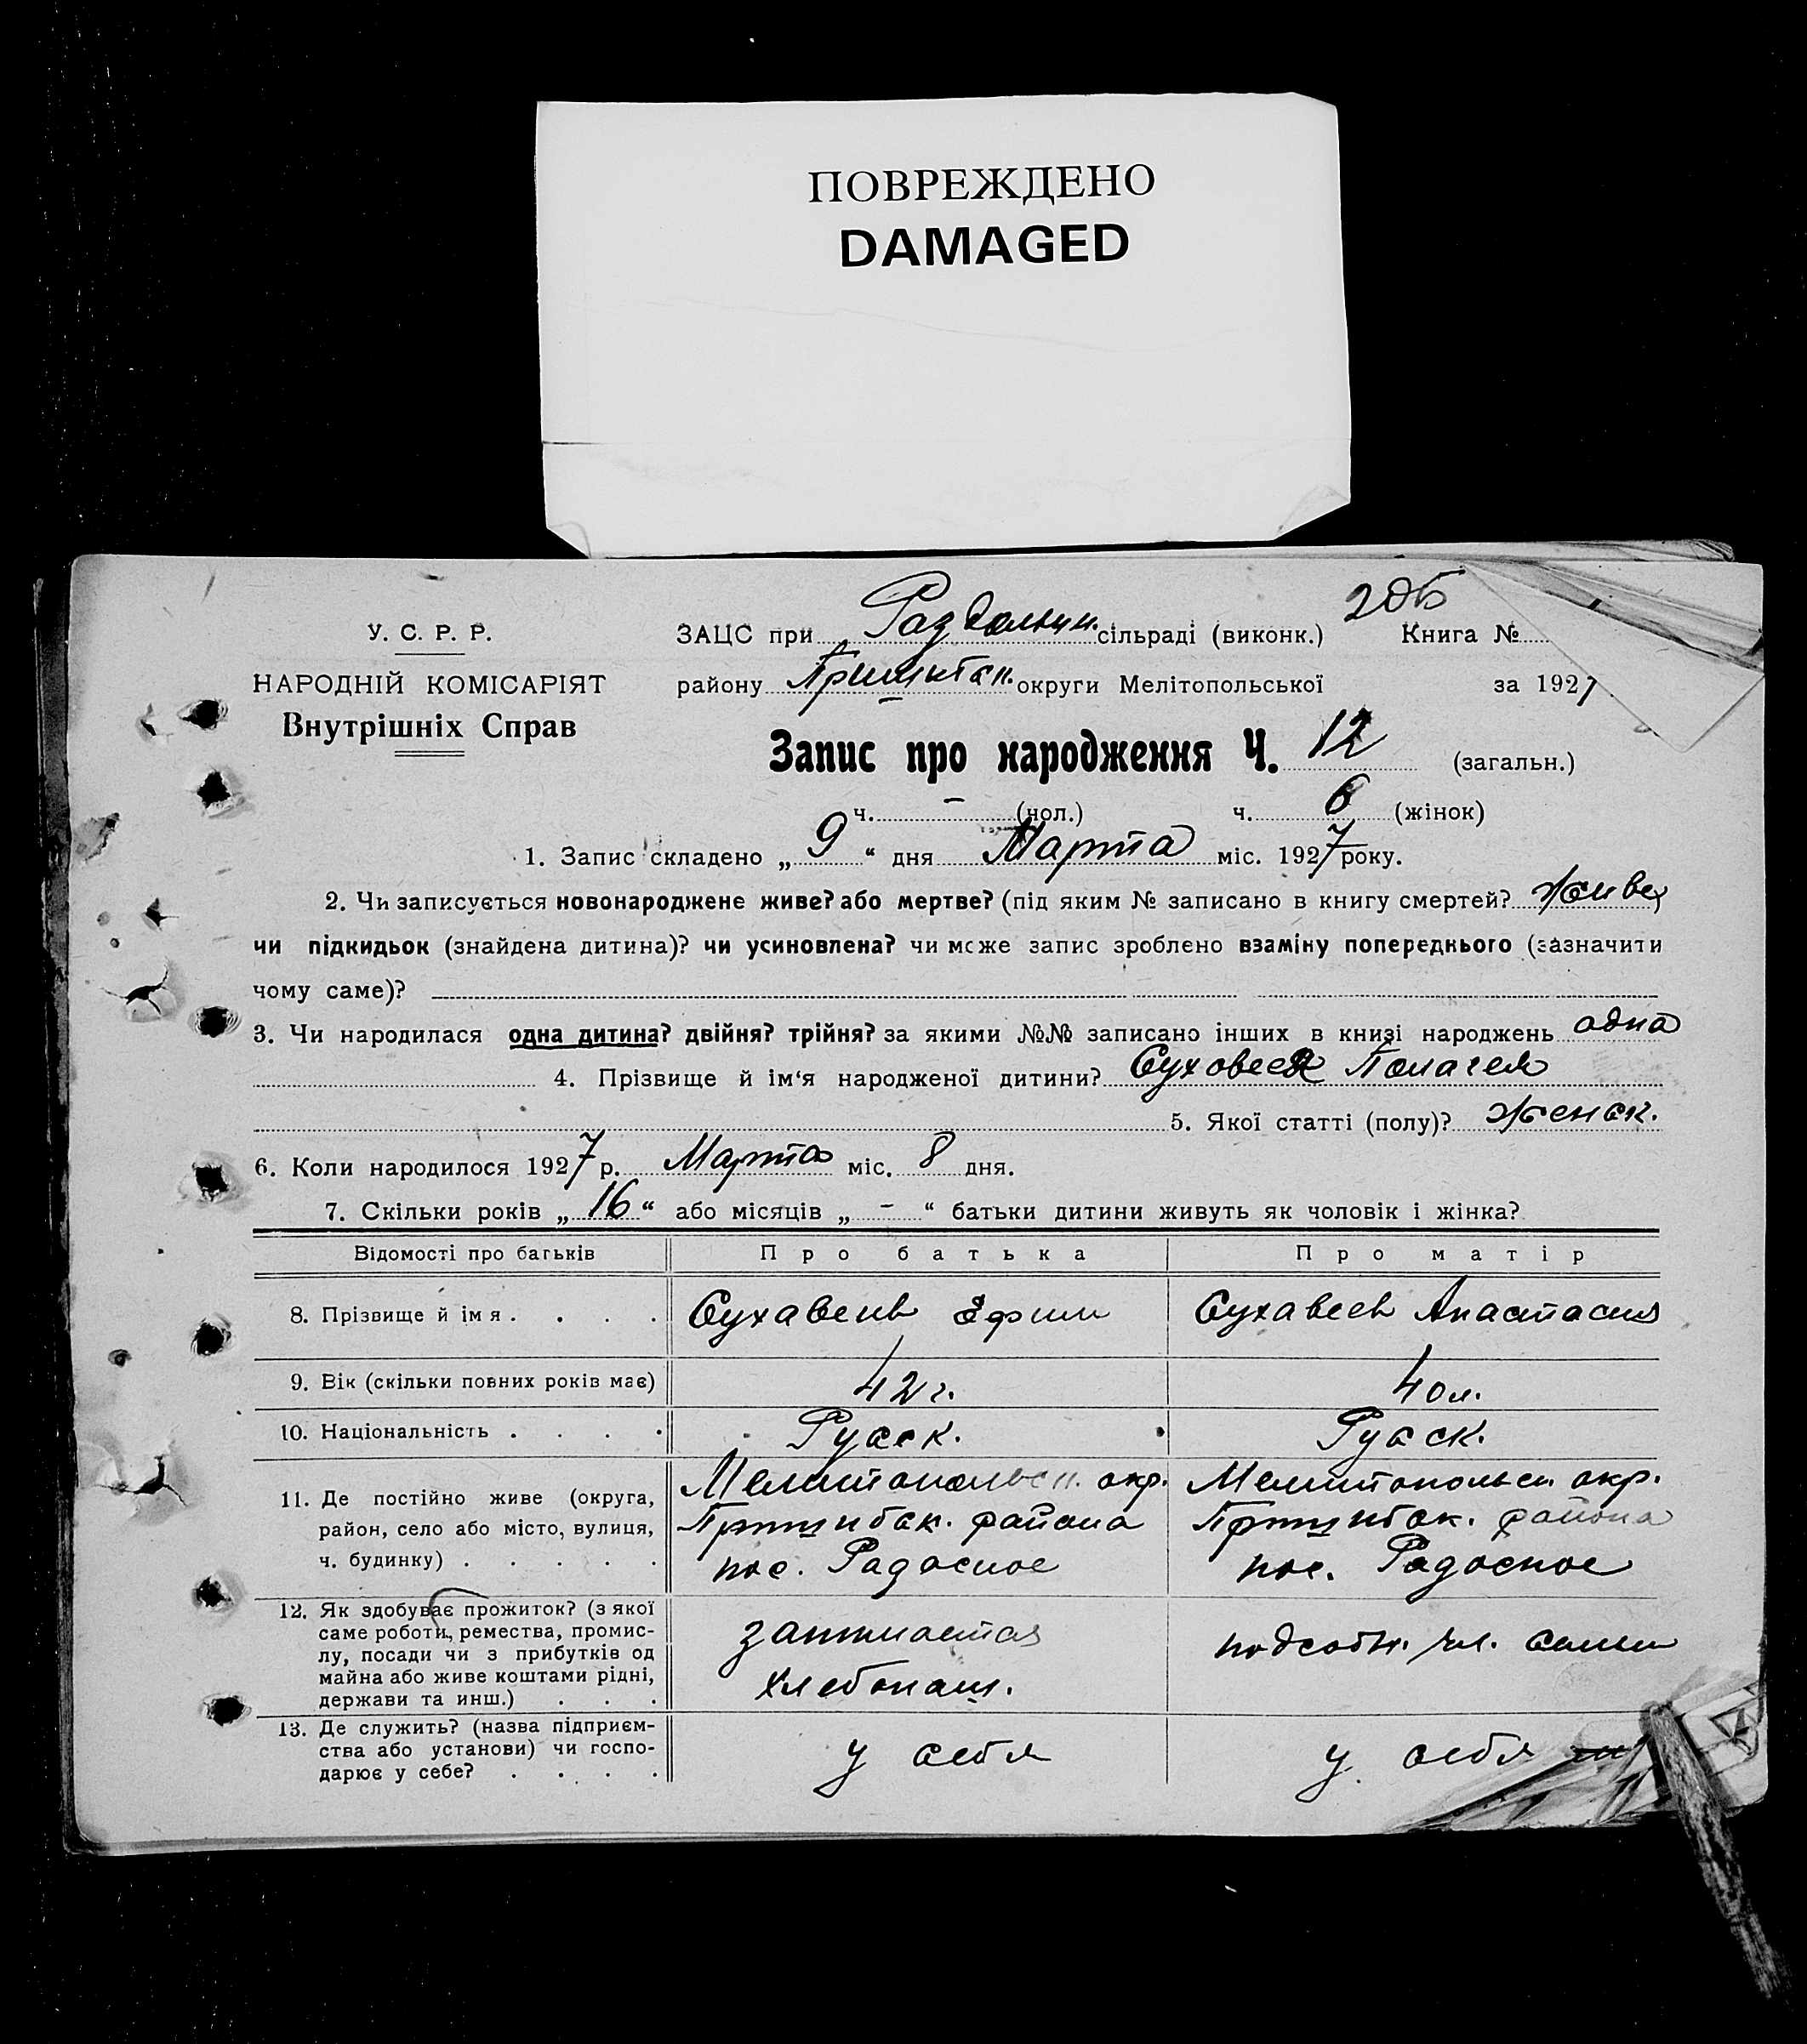 ПОВРЕЖДЕНО
DAMAGED
205
У. С. Р. Р.
ЗАЦС при Раздольн. сільраді (виконк.) Книга №
НАРОДНІЙ КОМІСАРІЯТ
району Пришибск. округи Мелітопольської за 1927
Внутрішніх Справ
Запис про народження Ч. 12 (загальн.)
ч. – (чол.) ч. 6 (жінок)
1. Запис складено „ 9 “ дня Марта міс. 1927 року.
2. Чи записується новонароджене живе? або мертве? (під яким № записано в книгу смертей? живе
чи підкидьок (знайдена дитина)? чи усиновлена? чи може запис зроблено взаміну попереднього (зазначити
чому саме)?
3. Чи народилася одна дитина? двійня? трійня? за якими №№ записано інших в книзі народжень одна
4. Прізвище й ім‘я народженої дитини? Суховеея Полагея
5. Якої статті (полу)? женск.
6. Коли народилося 1927 р. Марта міс. 8 дня.
7. Скільки років „ 16 “ або місяців „ – “ батьки дитини живуть як чоловік і жінка?
Відомості про батьків Про батька Про матір
8. Прізвище й імя . . . . Сухавеив Ефим Сухавеев Анастасия
9. Вік (скільки повних років має) 42 г. 40 л.
10. Національність . . . . Русск. Русск.
11. Де постійно живе (округа, Мелитопольск. окр. Мелитопольск. окр.
район, село або місто, вулиця, Пришибск. района Пришибск. района
ч. будинку) . . . . . пос. Радосное пос. Радосное
12. Як здобуває прожиток? (з якої
саме роботи, ремества, промис- подсобн. чл. семьи
лу, посади чи з прибутків од
майна або живе коштами рідні, хлебопаш.
держави та инш.) . . .
13. Де служить? (назва підприєм-
ства або установи) чи госпо- у себя у себя
дарює у себе? . . . .